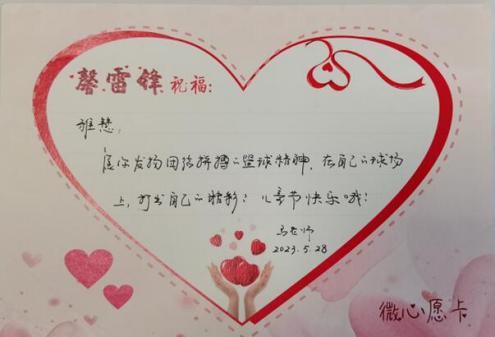 馨雷锋祝福:
雅慧,
愿你发扬团结拼搏的篮球精神,在自己的球场
上,打出自己的精彩!儿童节快乐哦!
马老师
2023.5.28
微心愿卡